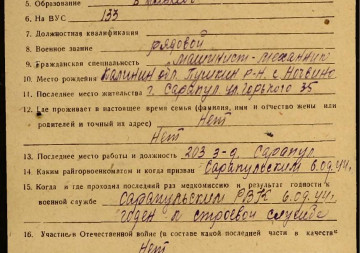 5. Образование
6. На ВУС 133
7. Должностная квалификация
8. Военное звание рядовой
9. Гражданская специальность машинист-механик
10. Место рождения Калинин обл. Пушкин р-н. с.
11. Последнее место жительства г. Сарапул ул. Горького 35
12. Где проживает в настоящее время семья (фамилия, имя и отчество жены или
родителей и точный их адрес) Нет
Нет
13. Последнее место работы и должность 203 з-д. Сарапул
14. Каким райгорвоенкоматом и когда призван Сарапульским 6.од.44г.
15. Когда и где проходил последний раз медкомиссию и результат годности к
военной службе Сарапульским РВК 6.од.44г.
годен к строевой службе
16. Участие в Отечественной войне (в составе какой последней части и в качестве
Нет